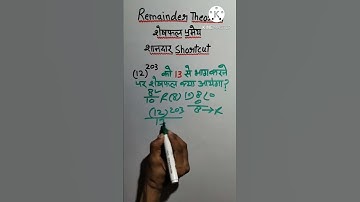 Remainder Theo
शेषफल प्रमेय
शानदार Shortcut
(12)²⁰³ को 13 से भाग करने
पर शेषफल क्या आयेगा?
8/10 R(8) 10)8(0
0
8→R
(12)²⁰³
13